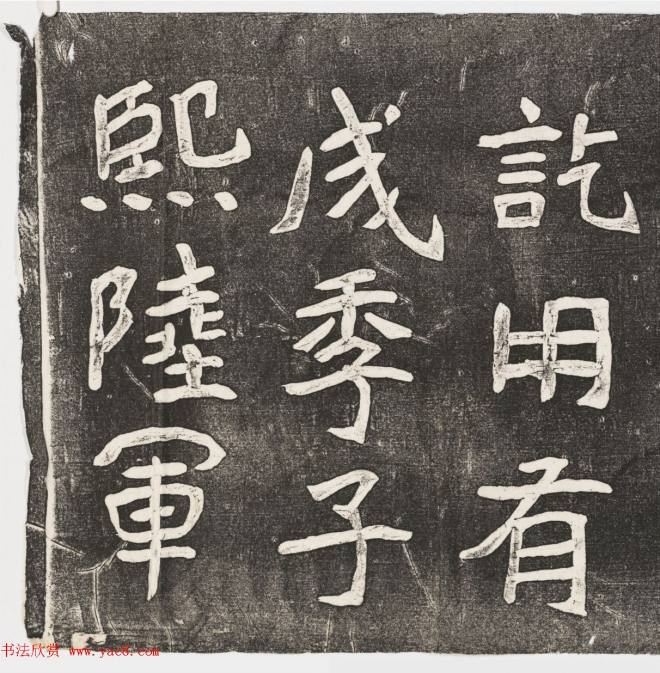 訖用有
成季子
熙陸軍
书法欣赏 www.yac8.com